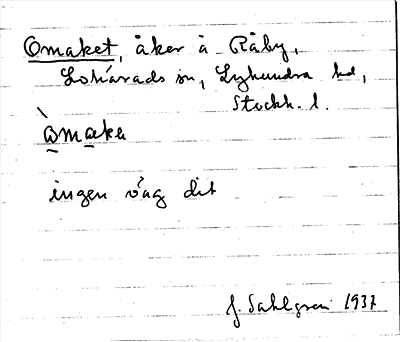 Omaket, åker å Råby,
Lohärads sn, Lyhundra hd,
Stockh. l.
òmakə
ingen väg dit
J. Sahlgren 1937